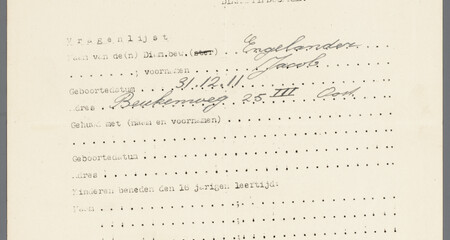 Vragenlijst
Naam van de(n) Diam.bew.(ster) Engelander
; voornamen Jacob
Geboortedatum 31.12.11
Adres Beukenweg 25 III Oost
Gehuwd met (naam en voornamen)
Geboortedatum
Adres
Kinderen beneden den 16 jarigen leeftijd:
Naam ;
;
;